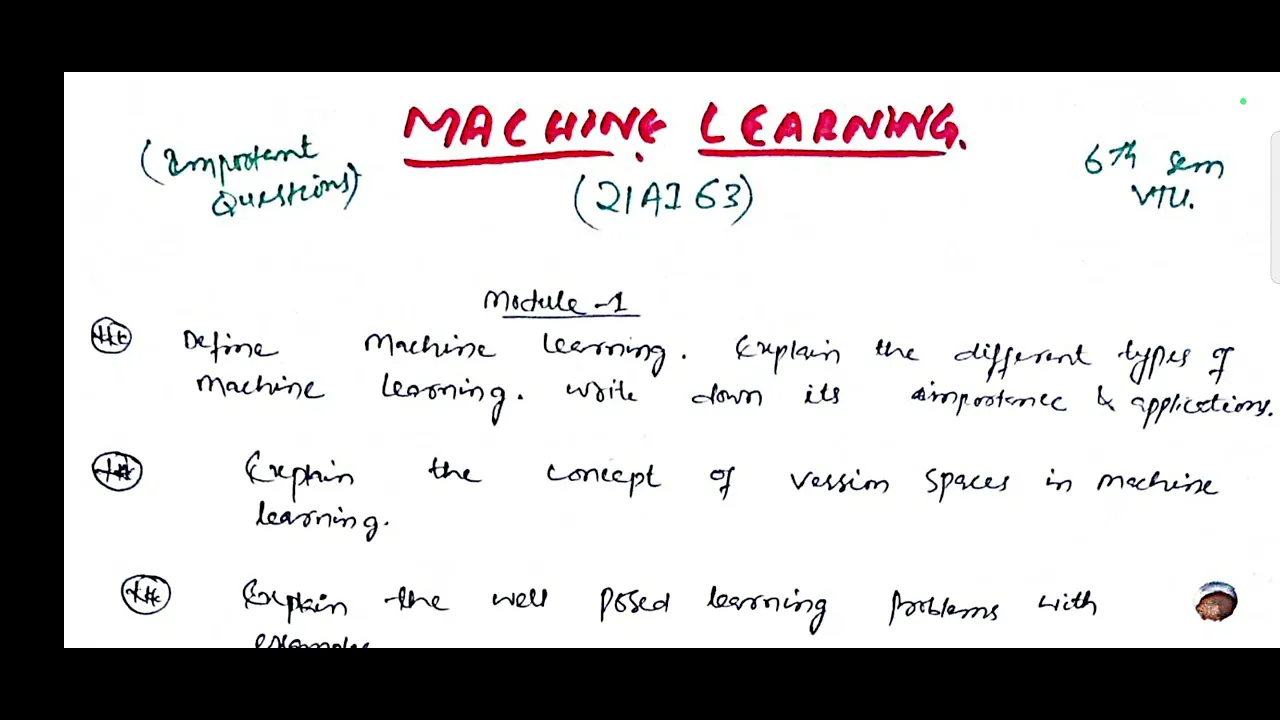 MACHINE LEARNING.
(Important
Questions)
(21AI63)
6th sem
VTU.
Module-1
Define Machine learning. Explain the different types of
Machine learning. Write down its importance & applications.
Explain the concept of version spaces in machine
learning.
Explain the well posed learning problems with
examples